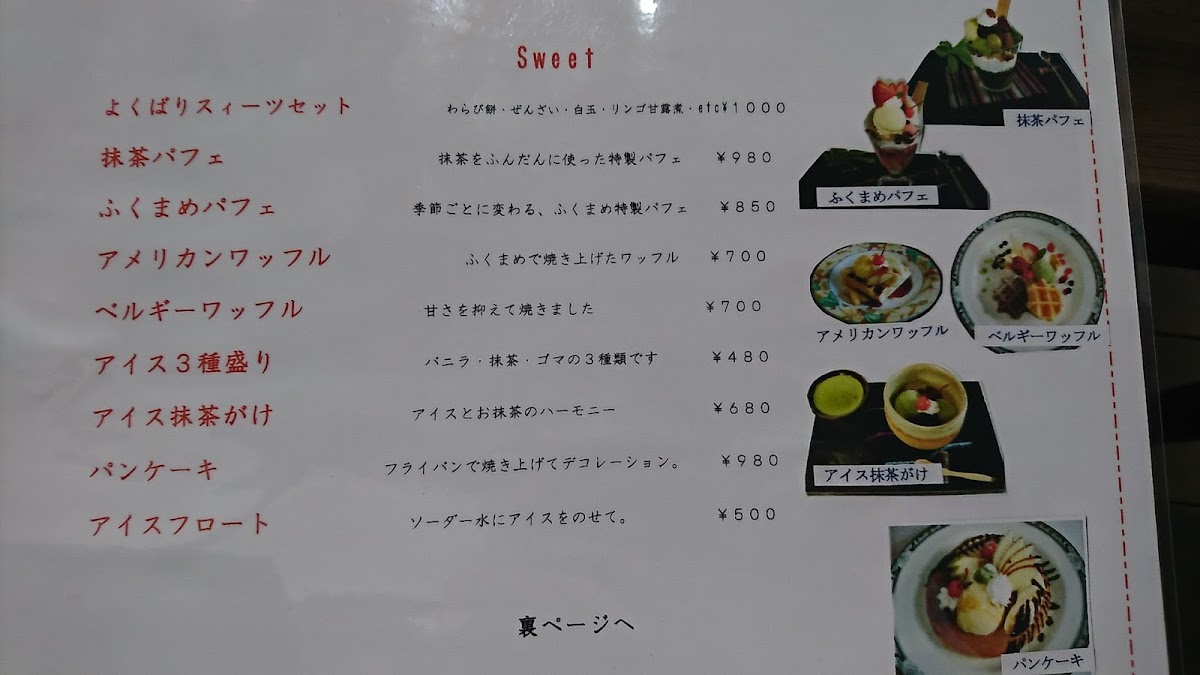 Sweet
よくばりスィーツセット わらび餅・ぜんざい・白玉・リンゴ甘露煮・etc¥1000
抹茶パフェ 抹茶をふんだんに使った特製パフェ ¥980
ふくまめパフェ 季節ごとに変わる、ふくまめ特製パフェ ¥850
アメリカンワッフル ふくまめで焼き上げたワッフル ¥700
ベルギーワッフル 甘さを抑えて焼きました ¥700
アイス3種盛り バニラ・抹茶・ゴマの3種類です ¥480
アイス抹茶がけ アイスとお抹茶のハーモニー ¥680
パンケーキ フライパンで焼き上げてデコレーション。 ¥980
アイスフロート ソーダー水にアイスをのせて。 ¥500
裏ページへ
抹茶パフェ
ふくまめパフェ
アメリカンワッフル
ベルギーワッフル
アイス抹茶がけ
パンケーキ